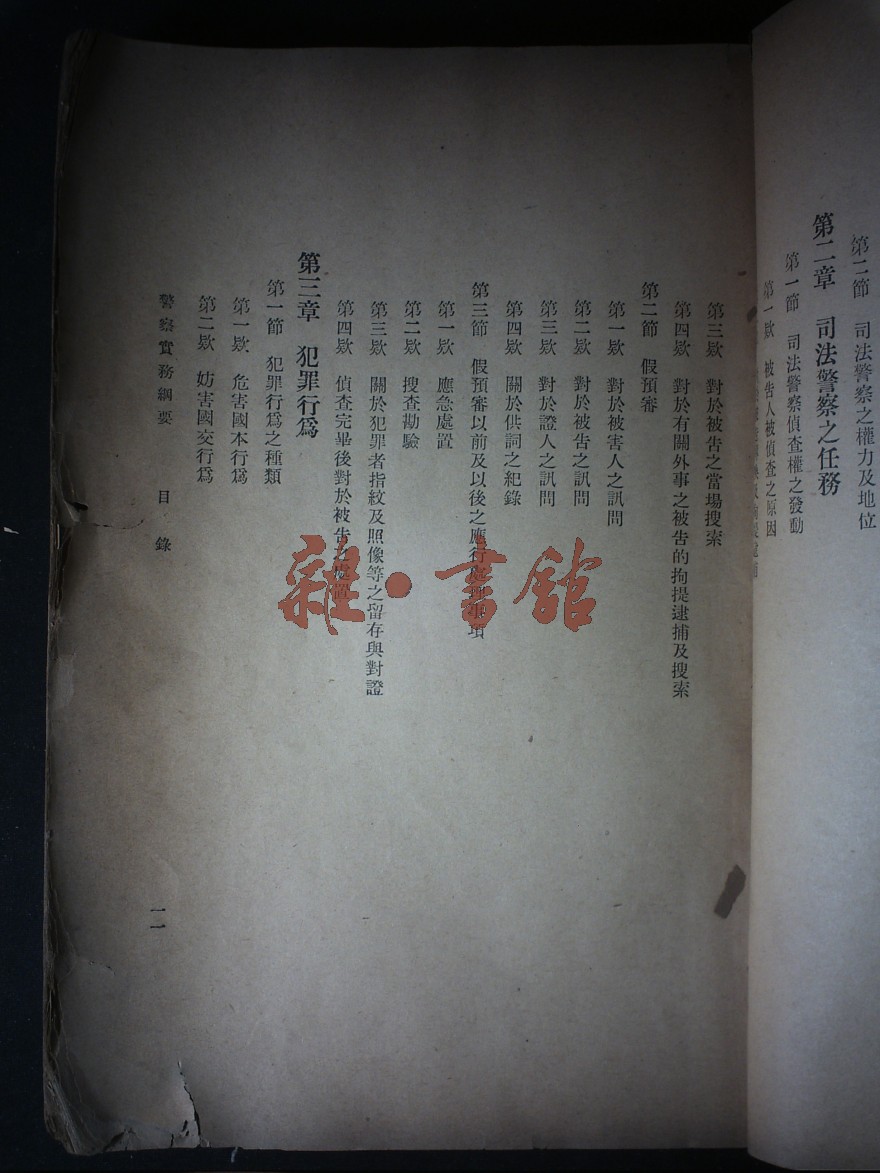 第二節 司法警察之權力及地位
第二章 司法警察之任務
第一節 司法警察偵查權之發動
第一欵 被告人被偵查之原因
第三欵 對於被告之當場搜索
第四欵 對於有關外事之被告的拘提逮捕及搜索
第二節 假預審
第一欵 對於被害人之訊問
第二欵 對於被告之訊問
第三欵 對於證人之訊問
第四欵 關於供詞之紀錄
第三節 假預審以前及以後之應行處理事項
第一欵 應急處置
第二欵 搜查勘驗
第三欵 關於犯罪者指紋及照像等之留存與對證
第四欵 偵查完畢後對於被告之處置
第三章 犯罪行爲
第一節 犯罪行爲之種類
第一欵 危害國本行爲
第二欵 妨害國交行爲
警察實務綱要 目錄
一一
雜·書館